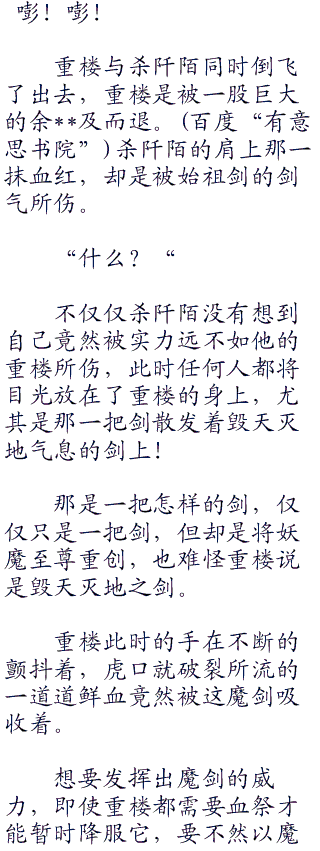 嘭！嘭！
重楼与杀阡陌同时倒飞
了出去，重楼是被一股巨大
的余**及而退。(百度“有意
思书院”)杀阡陌的肩上那一
抹血红，却是被始祖剑的剑
气所伤。
“什么？“
不仅仅杀阡陌没有想到
自己竟然被实力远不如他的
重楼所伤，此时任何人都将
目光放在了重楼的身上，尤
其是那一把剑散发着毁天灭
地气息的剑上！
那是一把怎样的剑，仅
仅只是一把剑，但却是将妖
魔至尊重创，也难怪重楼说
是毁天灭地之剑。
重楼此时的手在不断的
颤抖着，虎口就破裂所流的
一道道鲜血竟然被这魔剑吸
收着。
想要发挥出魔剑的威
力，即使重楼都需要血祭才
能暂时降服它，要不然以魔